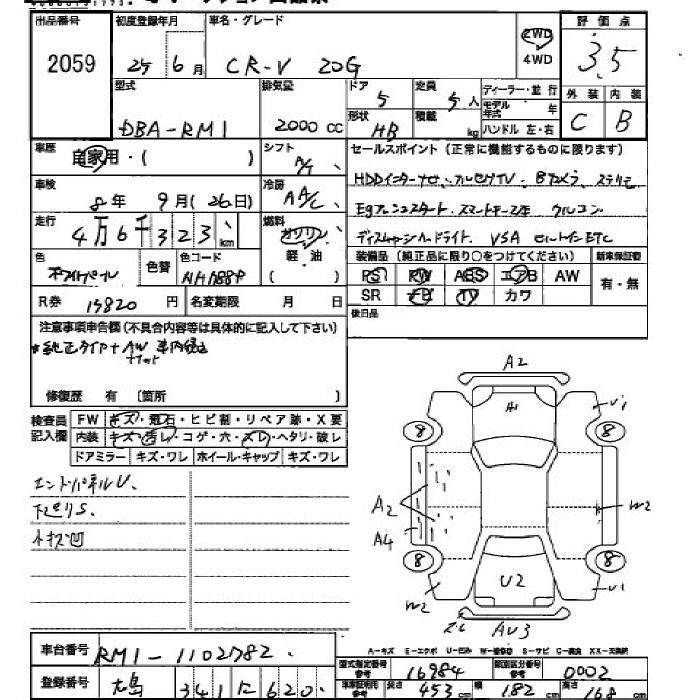 出品番号 初度登録年月 車名・グレード 評価点
2059 25年 6月 CR-V 20G 2WD 4WD 3.5
型式 排気量 ドア 5 定員 5人 ディーラー・並行 外装 内装
DBA-RM1 2000cc 形状 HB 積載 kg モデル年式 年 C B
ハンドル 左・右
車歴 自家用・( ) シフト A/T セールスポイント(正常に機能するものに限ります)
車検 8年 9月(26日) 冷房 AA/C
走行 4万6千323km 燃料 ガソリン 軽油 ( )
Egプッシュスタート、スマートキー クルコン
ディスチャージヘッドライト VSA ビルトインETC
色 ホワイトパール 色替 色コード NH788P 装備品(純正品に限り○をつけてください) 新車保証書
PS PW ABS エアB AW 有・無
SR ナビ TV カワ
R券 15820円 名変期限 月 日 後日品
注意事項申告欄(不具合内容等は具体的に記入して下さい)
修復歴 有 〔箇所 〕
検査員記入欄 FW キズ・飛石・ヒビ割・リペア跡・X要
内装 キズ・汚レ・コゲ・穴・スレ・ヘタリ・破レ
ドアミラー キズ・ワレ ホイール・キャップ キズ・ワレ
エンドパネルU.
下廻りS.
小キズ凹
A2
A1 U1
8 8
A2 W2
A4
8 8
W2 U2 U1
AU3
A-キズ E-エクボ U-凹み W-補修跡 S-サビ C-腐食 XX-交換済
車台番号 RM1-1102782
型式指定番号 参考 16984 類別区分番号 参考 0002
登録番号 341 に 620
長さ 453cm 幅 182cm 高さ 168cm